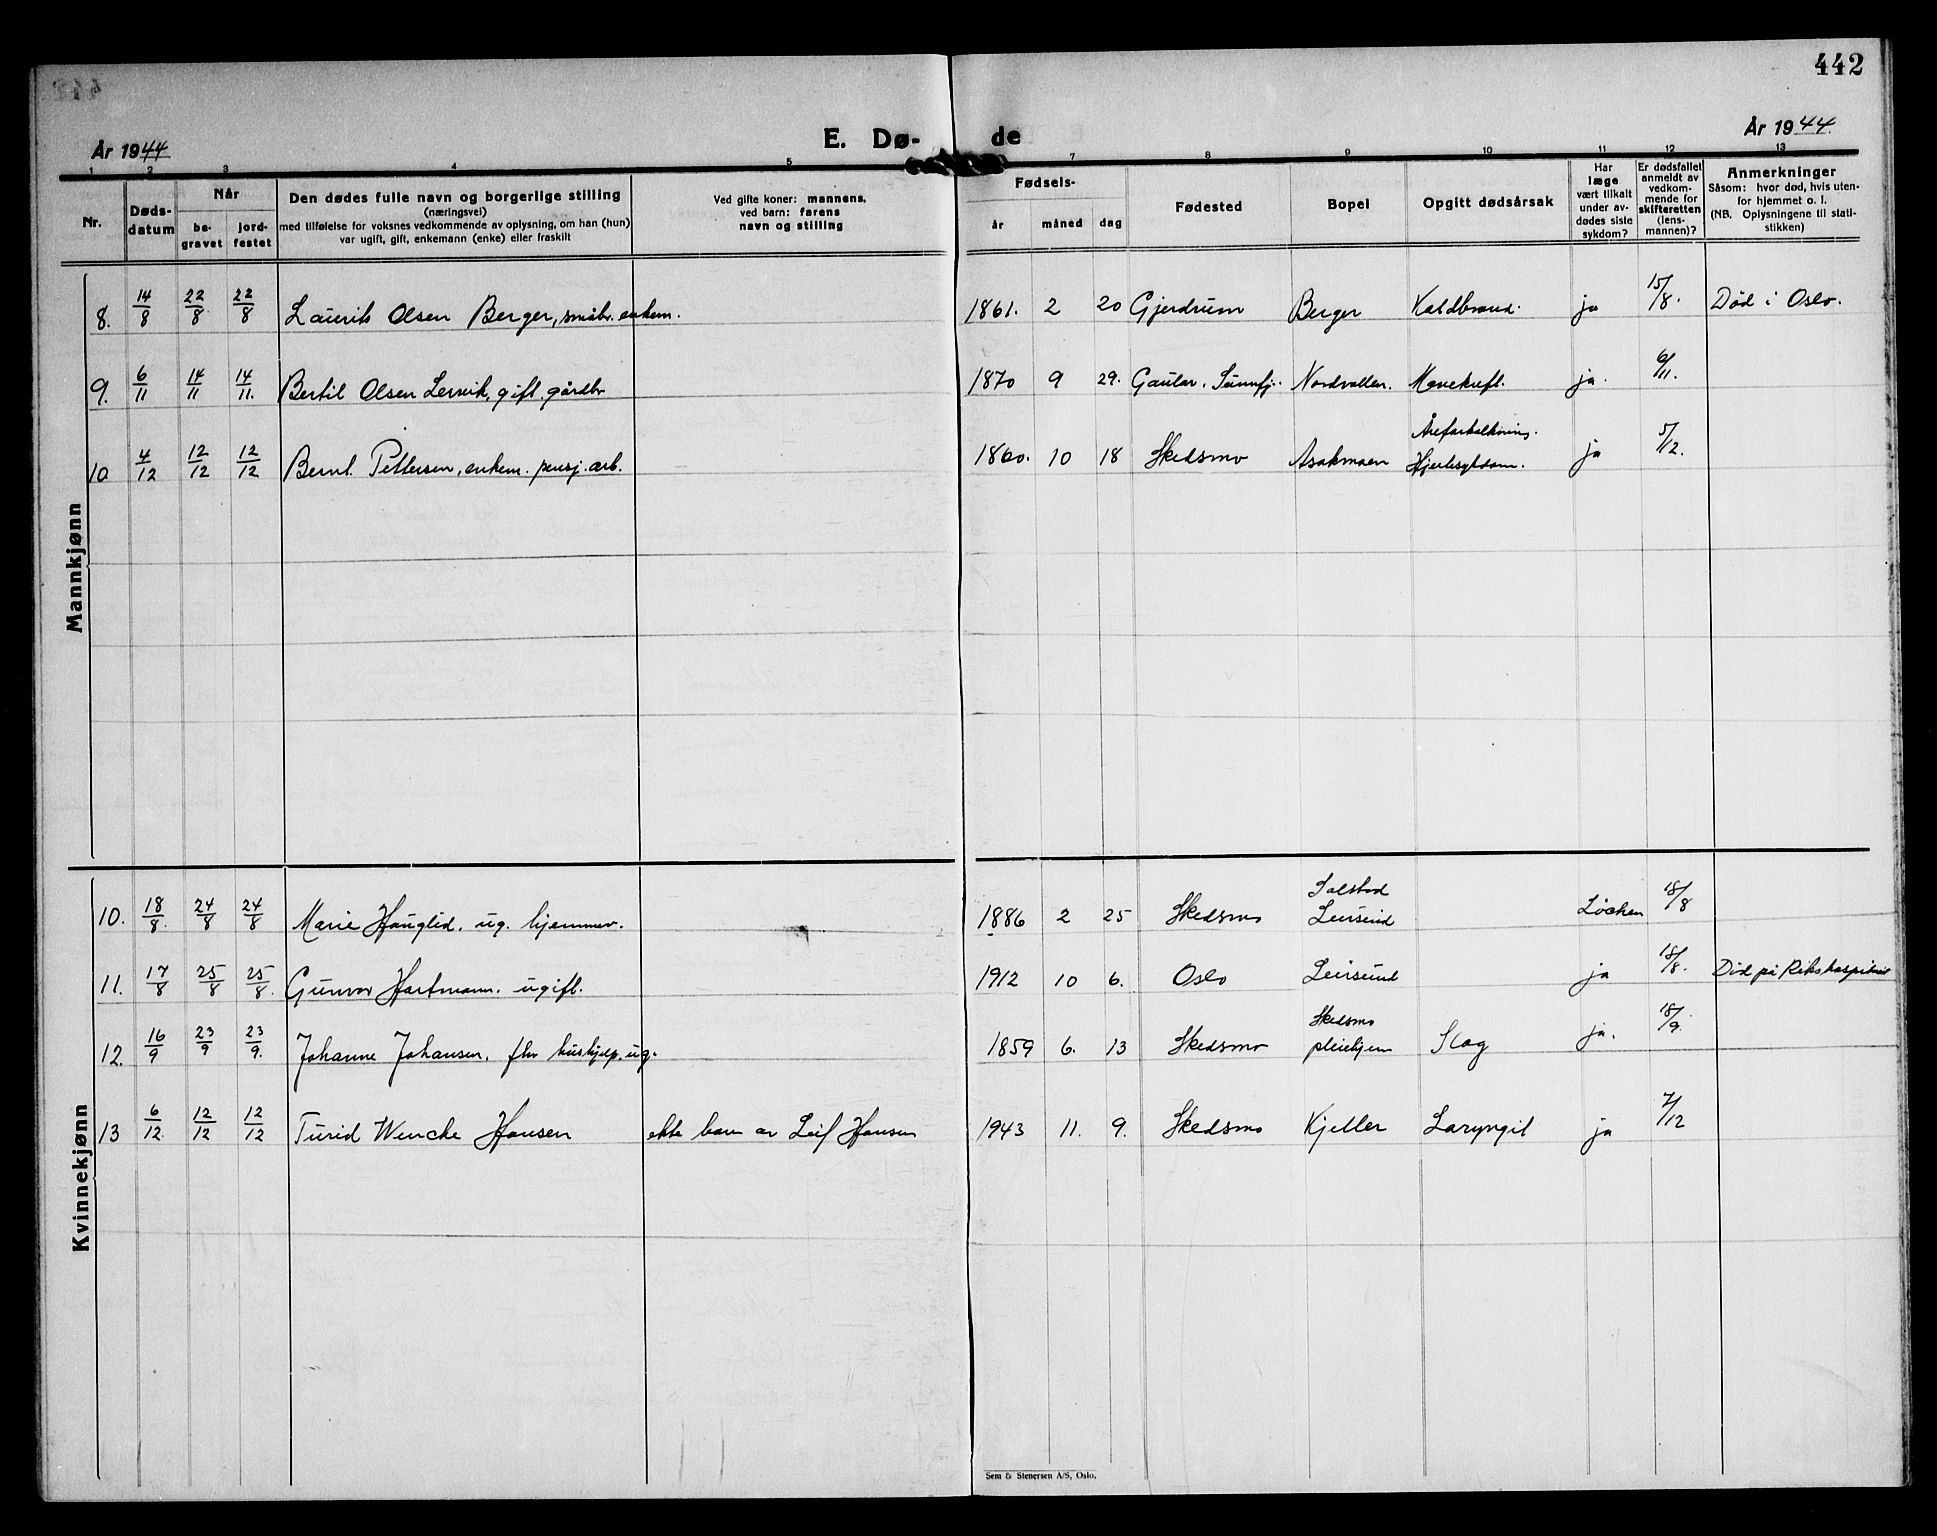 442
År 1944
E. Dø- de
År 1944.
1 2 3 4 5 7 8 9 10 11 12 13
Nr.
Døds-
datum
Når
be-
gravet
jord-
festet
Den dødes fulle navn og borgerlige stilling
(næringsvei)
med tilføielse for voksnes vedkommende av oplysning, om han (hun)
var ugift, gift, enkemann (enke) eller fraskilt
Ved gifte koner: mannens,
ved barn: farens
navn og stilling
Fødsels-
år måned dag
Fødested
Bopel
Opgitt dødsårsak
Har
læge
vært tilkalt
under av-
dødes siste
sykdom?
Er dødsfallet
anmeldt av
vedkom-
mende for
skifteretten
(lens-
mannen)?
Anmerkninger
Såsom: hvor død, hvis uten-
for hjemmet o. l.
(NB. Oplysningene til stati-
stikken)
Mannkjønn
8. 14/8 22/8 22/8 Laurits Olsen Berger, småbr. enkem. 1861. 2 20 Gjerdrum Berger Koldbrand. ja 15/8. Død i Oslo.
9. 6/11 14/11 14/11. Bertil Olsen Lervik, gift. gårdbr 1870 9 29. Gaular, Sunnfj. Nordvollen. Mavekreft. ja. 6/11.
10 4/12 12/12 12/12 Bernt Pettersen, enkem. pensj. arb. 1860. 10 18 Skedsmo Asakmoen Åreforkalkning. Hjertesykdom. ja 5/12.
Kvinnekjønn
10. 18/8. 24/8 24/8 Marie Hauglid. ug. hjemmev. 1886 2 25 Skedsmo Leirsund Løchen 18/8
11. 17/8 25/8 25/8. Gunvor Hartmann. ugift. 1912 10 6. Oslo Leirsund ja 18/8. Død på Rikshospitalet
12. 16/9 23/9 23/9. Johanne Johansen. fhv hushjelp. ug. 1859 6. 13 Skedsmo Skedsmo pleiehjem Slag ja. 18/9.
13 6/12. 12/12 12/12 Turid Wencke Hansen ekte barn av Leif Hansen 1943 11. 9. Skedsmo Kjeller Laryngit ja 7/12
Sem & Stenersen A/S, Oslo.